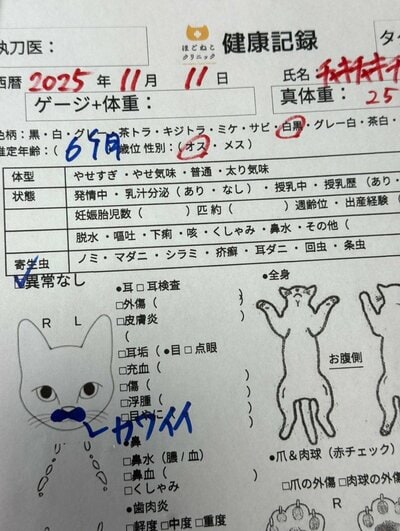 執刀医：
ほどねこ
クリニック
健康記録
西暦 2025 年 11 月 11 日
氏名 チャキチャキチ
ゲージ+体重：
真体重： 25
色柄：黒・白・グレー・茶トラ・キジトラ・ミケ・サビ・白黒・グレー白・茶白・
推定年齢：（ 6ヶ月 歳位 性別：（オス・メス）
体型 やせすぎ・やせ気味・普通・太り気味
状態 発情中・乳汁分泌（あり・なし）・授乳中・授乳歴（あり・
妊娠胎児数（ ）匹 約（ ）週齢位・出産経験（
脱水・嘔吐・下痢・咳・くしゃみ・鼻水・その他（
寄生虫 ノミ・マダニ・シラミ・疥癬・耳ダニ・回虫・条虫
異常なし
●耳 □耳検査
●全身
R L
□外傷（ ）
□皮膚炎
（ ）
□耳垢（ ●目 □点眼
□充血（ ）
□傷（ ）
□浮腫（ ）
□目やに
お腹側
カワイイ
●鼻
□鼻水（膿/血）
□鼻血（ ）
□くしゃみ
●歯肉炎
□軽度 □中度 □重度
●爪＆肉球（赤チェック）
□爪の外傷 □肉球の外傷
R